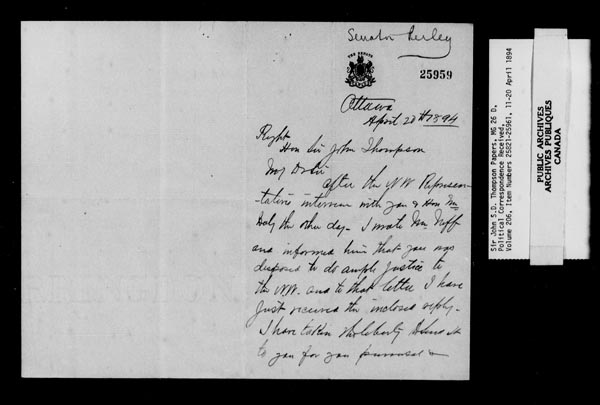 Senator Perley
THE SENATE
CANADA
25959
Ottawa
April 20th 1894
Right
Hon Sir John Thompson
My D Sir
After the NW Represen-
tative interview with you & Hon Mr
Daly the other day - I wrote Mr Neff
and informed him that you was
disposed to do ample Justice to
the NW. and to that letter I have
Just received the inclosed reply.
I have taken the liberty to send it
to you for you perusal &
Sir John S.D. Thompson Papers, MG 26 D,
Political Correspondence Received,
Volume 206, Item Numbers 25821-25961, 11-20 April 1894
PUBLIC ARCHIVES
ARCHIVES PUBLIQUES
CANADA